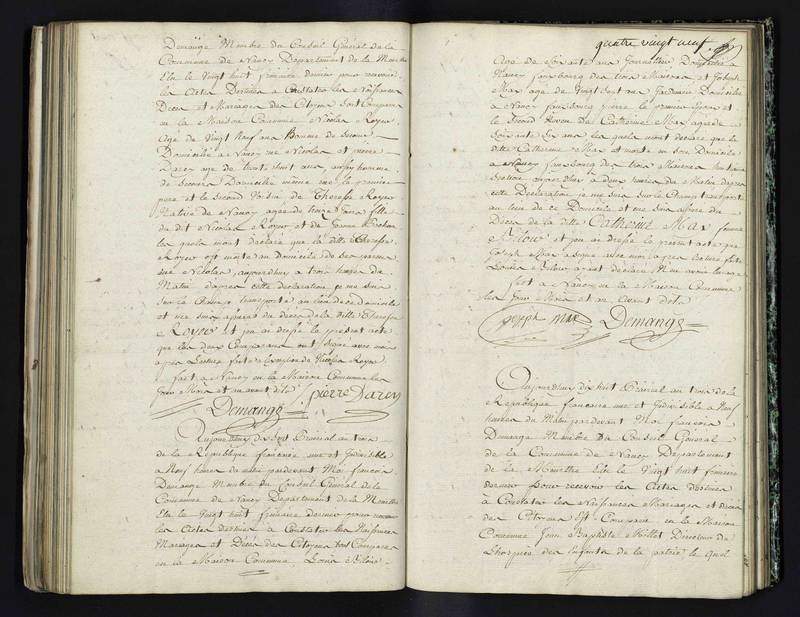 Demange Membre du Conseil Général de la
Commune de Nancy Département de la Meurthe
Elu le Vingt huit frimaire dernier pour recevoir
les Actes Destinés a Constater les Naissances
Décès et Mariages des Citoyens sont Comparus
en la Maison Commune Nicolas Royer
agé de Vingt neuf ans homme de
Domicilié a Nancy rue Nicolas et pierre
Darey agé de trente huit ans aussi homme
de Domicilié même rue le premier
pere et le Second Voisin de Therese Royer
Native de Nancy agée de ans fille
du dit Nicolas Royer et de Jeanne
les quels mont déclaré que la ditte Therese
Royer est morte au Domicile de ses parens
rue Nicolas, aujourdhuy a trois heures du
Matin d'apres cette déclaration je me suis
sur le Champ transporté au lieu de ce domicile
et me suis assuré du décès de la ditte Therese
Royer et jen ai dressé le présent acte
que les deux Comparans ont Signé avec moi
apres Lecture faite a l'exception de Nicolas Royer
fait a Nancy en la Maison Commune les
Jour Mois et an avant dits pierre Darey
Demange
Aujourdhuy dix Sept Prairial an trois
de la République francaise une et Indivisible
a Neuf heures du matin pardevant Moi francois
Demange Membre du Conseil Général de la
Commune de Nancy Département de la Meurthe
Elu le Vingt huit frimaire dernier pour recevoir
les Actes destinés a Constater les Naissances
Mariages et Décès des Citoyens sont Comparus
en la Maison Commune Louis Bilow
quatre vingt neuf.
Agé de Soixante ans Journallier Domicilié a
Nancy fauxbourg des trois Maisons et Joseph
Max agé de Vingt Sept ans Jardinier Domicilié
a Nancy fauxbourg pierre le premier Epoux et
le Second Neveu de Catherine Max agée de
Soixante Six ans les quels mont déclaré que la
ditte Catherine Max est morte en Son Domicile
a Nancy fauxbourg des trois Maisons huitieme
Section aujourdhuy a deux heures du Matin dapres
cette Déclaration je me Suis sur le Champ transporté
au lieu de ce Domicile et me suis assuré du
Décès de la ditte Catherine Max femme
Bilow et jen ai dressé le présent acte que
Joseph Max a signé avec moi apres lecture faite
Louis Bilow ayant déclaré ne
fait a Nancy en la Maison Commune
les Jour Mois et an avant dits
joseph max Demange
Aujourdhuy dix huit Prairial an trois de la
République francaise une et Indivisible a Neuf
heures du Matin pardevant Moi francois
Demange Membre du Conseil Général
de la Commune de Nancy Département
de la Meurthe Elu le Vingt huit frimaire
dernier pour recevoir les Actes destinés
a Constater les Naissances Mariages et décès
des Citoyens Est Comparu en la Maison
Commune Jean Baptiste Millet Directeur de
Lhospice des Enfants de la patrie le quel